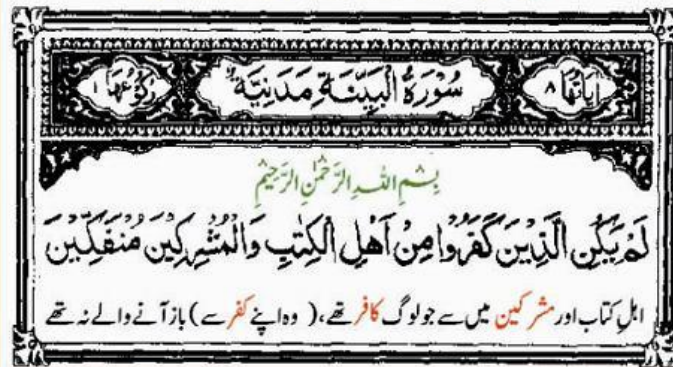 اٰیَاتُهَا ۸ سُوْرَةُ الْبَيِّنَةِ مَدَنِيَّةٌ رُكُوْعُهَا ۱
بِسْمِ اللّٰهِ الرَّحْمٰنِ الرَّحِيْمِ
لَمْ يَكُنِ الَّذِيْنَ كَفَرُوْا مِنْ اَهْلِ الْكِتٰبِ وَالْمُشْرِكِيْنَ مُنْفَكِّيْنَ
اہلِ کتاب اور مشرکین میں سے جو لوگ کافر تھے، ( وہ اپنے کفر سے ) باز آنے والے نہ تھے